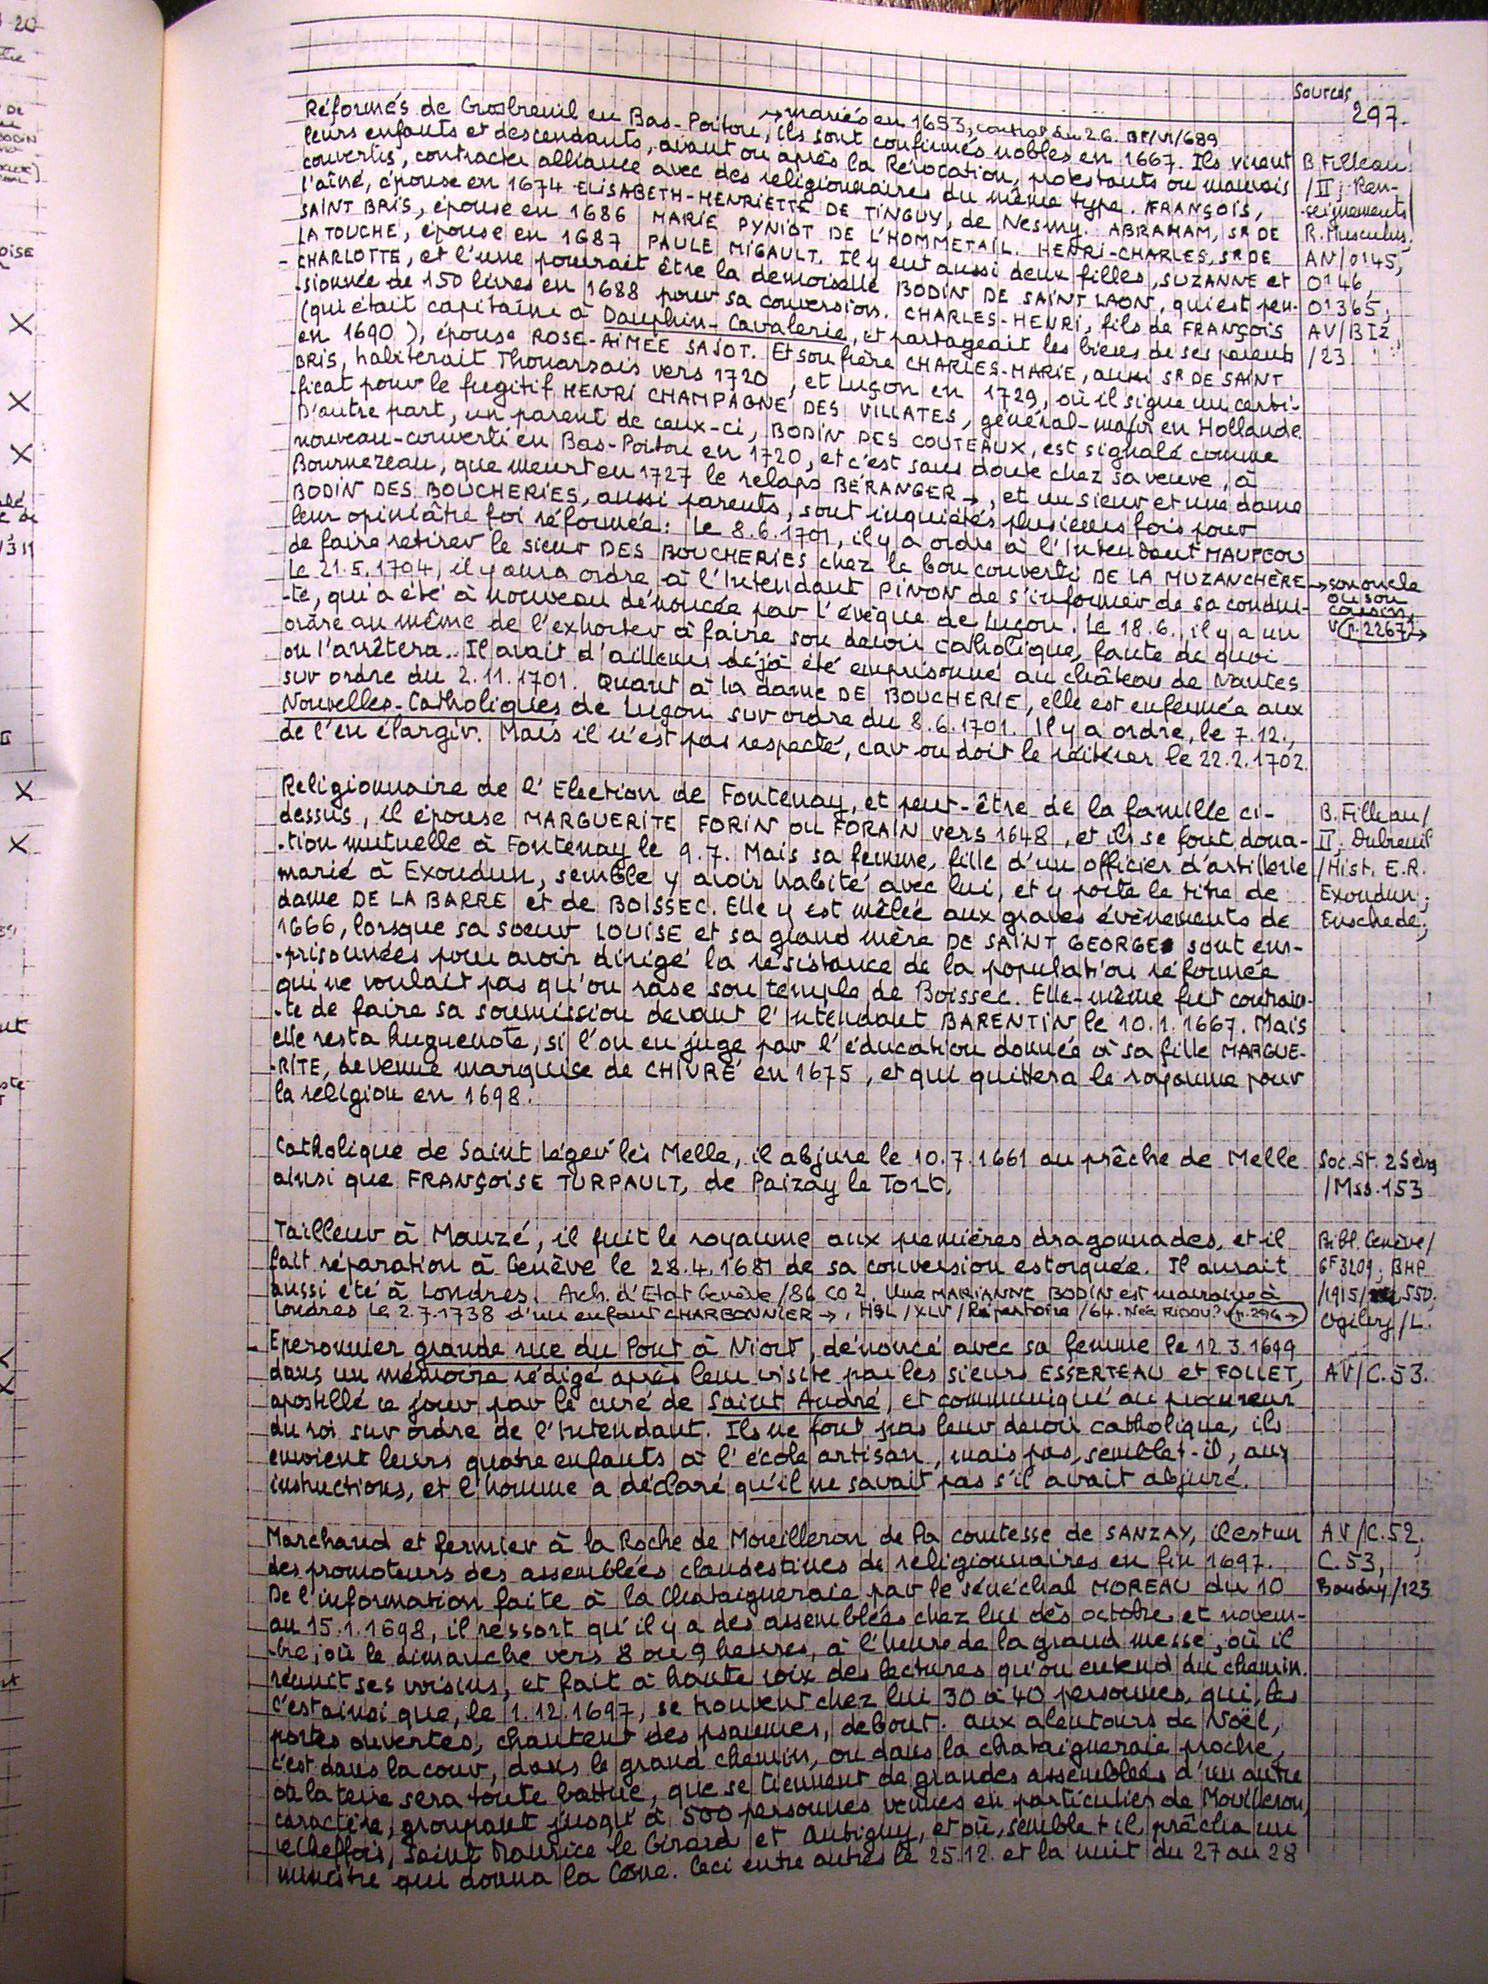 Sources
297.
Réformés de Grosbreuil en Bas-Poitou, → mariés en 1653, contrat du 26. BP/VI/689
leurs enfants et descendants, avant ou après la Révocation, ils sont confirmés nobles en 1667. Ils virent
convertis, contracter alliance avec des religionnaires du même type. protestants ou mauvais
l'aîné, épouse en 1674 ELISABETH-HENRIETTE DE TINGUY, de Nesmy. FRANÇOIS,
SAINT BRIS, épouse en 1686 MARIE PYNIOT DE L'HOMMETAIL. ABRAHAM, SR DE
LA TOUCHE, épouse en 1687 PAULE MIGAULT. HENRI-CHARLES, SR DE
CHARLOTTE, et l'une pourrait être la demoiselle Il y eut aussi deux filles, SUZANNE et
-sionnée de 150 livres en 1688 pour sa conversion. BODIN DE SAINT LAON, qui est pen-
(qui était capitaine à Dauphin-Cavalerie, CHARLES-HENRI, fils de FRANÇOIS
en 1690), épouse ROSE-AIMÉE SAJOT. et partageait les biens de ses parents
BRIS, habiterait Thouarsais vers 1720, Et son frère CHARLES-MARIE, aussi SR DE SAINT
-ficat pour le fugitif HENRI CHAMPAGNE DES VILLATES, et Luçon en 1729, où il signe un certi-
D'autre part, un parent de ceux-ci, BODIN DES COUTEAUX, général-major en Hollande.
nouveau-converti en Bas-Poitou en 1720, est signalé comme
Bournezeau, que meurt en 1727 le relaps BÉRANGER →, et c'est sans doute chez sa veuve, à
BODIN DES BOUCHERIES, aussi parents, sont inquiétés plusieurs fois pour et un sieur et une dame
leur opiniâtre foi réformée: Le 8.6.1701, il y a ordre à l'Intendant MAUPEOU
de faire retirer le sieur DES BOUCHERIES chez le bon converti DE LA MUZANCHÈRE
Le 21.5.1704, il y aura ordre à l'Intendant PINON de s'informer de sa condui-
-te, qui a été à nouveau dénoncée par l'évêque de Luçon. Le 18.6., il y a un
ordre au même de l'exhorter à faire son devoir catholique, faute de quoi
on l'arrêtera. Il avait d'ailleurs déjà été emprisonné au château de Nantes
sur ordre du 2.11.1701. Quant à la dame DE BOUCHERIE, elle est enfermée aux
Nouvelles-Catholiques de Luçon sur ordre du 8.6.1701. Il y a ordre, le 7.12.,
de l'en élargir. Mais il n'est pas respecté, car on doit le réitérer le 22.2.1702.
B. Filleau
/II; Ren-
-seignements
R. Musculus;
AN/O145,
O146,
O1365;
AV/B12
/23
→ son oncle
ou son
cousin,
V (p.2267) →
Religionnaire de l'Election de Fontenay, et peut-être de la famille ci-
dessus, il épouse MARGUERITE FORIN OU FORAIN vers 1648, et ils se font dona-
-tion mutuelle à Fontenay le 9.7. Mais sa femme, fille d'un officier d'artillerie
marié à Exoudun, semble y avoir habité avec lui, et y porte le titre de
dame DE LA BARRE et de BOISSEC. Elle y est mêlée aux graves évènements de
1666, lorsque sa soeur LOUISE et sa grand mère DE SAINT GEORGE sont em-
-prisonnées pour avoir dirigé la résistance de la population réformée
qui ne voulait pas qu'on rase son temple de Boissec. Elle-même fut contrain-
-te de faire sa soumission devant l'Intendant BARENTIN le 10.1.1667. Mais
elle resta huguenote, si l'on en juge par l'éducation donnée à sa fille MARGUE-
-RITE, devenue marquise de CHIVRÉ en 1675, et qui quittera le royaume pour
la religion en 1698.
B. Filleau/
II; Dubreuil
/Hist. E.R.
Exoudun;
Enschede;
Catholique de Saint Léger lès Melle, il abjure le 10.7.1661 au prêche de Melle
ainsi que FRANÇOISE TURPAULT, de Paizay le Tort.
Soc. St. 2 Sèvres
/Mss.153
Tailleur à Mauzé, il fuit le royaume aux premières dragonnades, et il
fait réparation à Genève le 28.4.1681 de sa conversion extorquée. Il aurait
aussi été à Londres. Arch. d'Etat Genève/86 CO2. Une MARIANNE BODIN est marraine à
Londres le 2.7.1738 d'un enfant CHARBONNIER →, HSL/XLV/Répertoire/64. Née RIDOU? (p.296 →)
Bibl. Genève/
GF3209; BHP
/1915/550;
Ogilvy/L.
- Eperonnier grande rue du Pont à Niort, dénoncé avec sa femme le 12.3.1699
dans un mémoire rédigé après leur visite par les sieurs ESSERTEAU et FOLLET,
apostillé ce jour par le curé de Saint André, et communiqué au procureur
du roi sur ordre de l'Intendant. Ils ne font pas leur devoir catholique, ils
envoient leurs quatre enfants à l'école artisan, mais pas, semble t-il, aux
instructions, et l'homme a déclaré qu'il ne savait pas s'il avait abjuré.
AV/C.53.
Marchand et fermier à la Roche de Mouilleron, de la comtesse de SANZAY, il est un
des promoteurs des assemblées clandestines de religionnaires en fin 1697.
De l'information faite à la Chataigneraie par le sénéchal MOREAU du 10
au 15.1.1698, il ressort qu'il y a des assemblées chez lui dès octobre et novem-
-bre, où le dimanche vers 8 ou 9 heures, à l'heure de la grand messe, où il
réunit ses voisins, et fait à haute voix des lectures qu'on entend du chemin.
C'est ainsi que, le 1.12.1697, se trouvent chez lui 30 à 40 personnes, qui, les
portes ouvertes, chantent des psaumes, debout. aux alentours de Noël,
c'est dans la cour, dans le grand chemin, ou dans la chataigneraie proche,
où la terre sera toute battue, que se tiennent de grandes assemblées d'un autre
caractère, groupant jusqu'à 500 personnes venues en particulier de Mouilleron,
Cheffois, Saint Maurice le Girard et Aubigny, et où, semble t-il, prêcha un
ministre qui donna la Cène. Ceci entre autres le 25.12. et la nuit du 27 au 28
AV/C.52,
C.53,
Baudry/123